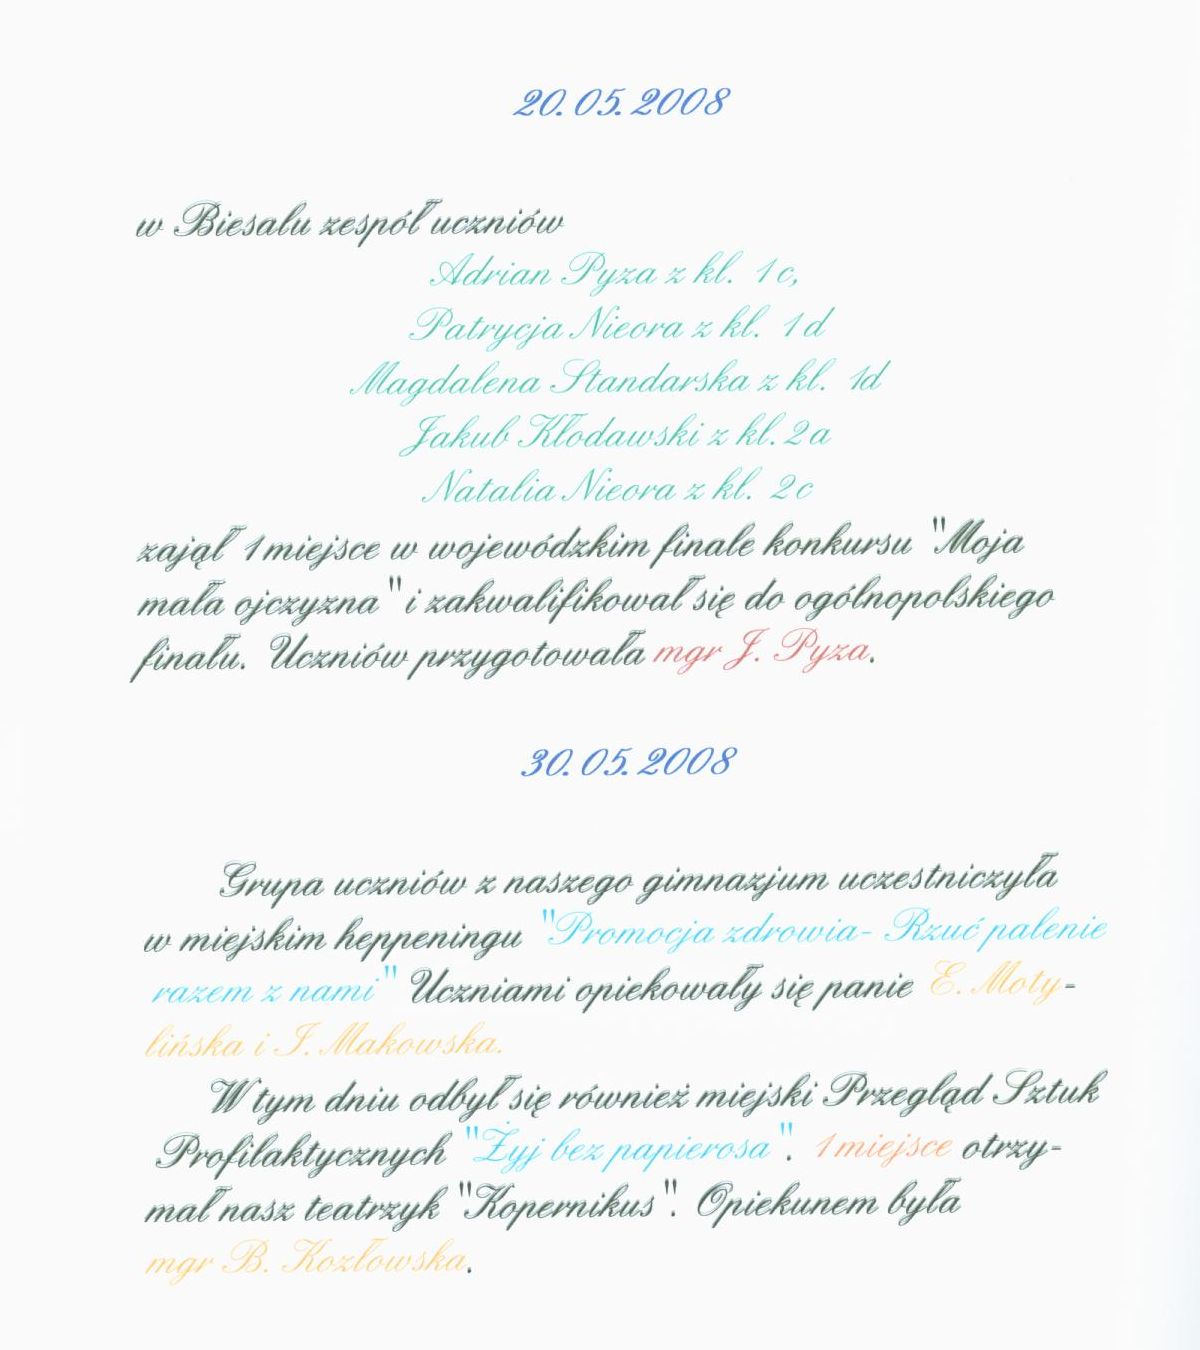 20.05.2008
w Biesalu zespół uczniów
Adrian Pyza z kl. 1c,
Patrycja Nieora z kl. 1d
Magdalena Standarska z kl. 1d
Jakub Kłodawski z kl. 2a
Natalia Nieora z kl. 2c
zajął 1 miejsce w wojewódzkim finale konkursu "Moja
mała ojczyzna" i zakwalifikował się do ogólnopolskiego
finału. Uczniów przygotowała mgr J. Pyza.
30.05.2008
Grupa uczniów z naszego gimnazjum uczestniczyła
w miejskim heppeningu "Promocja zdrowia- Rzuć palenie
razem z nami" Uczniami opiekowały się panie E. Moty-
lińska i I. Makowska.
W tym dniu odbył się również miejski Przegląd Sztuk
Profilaktycznych "Żyj bez papierosa". 1 miejsce otrzy-
mał nasz teatrzyk "Kopernikus". Opiekunem była
mgr B. Kozłowska.